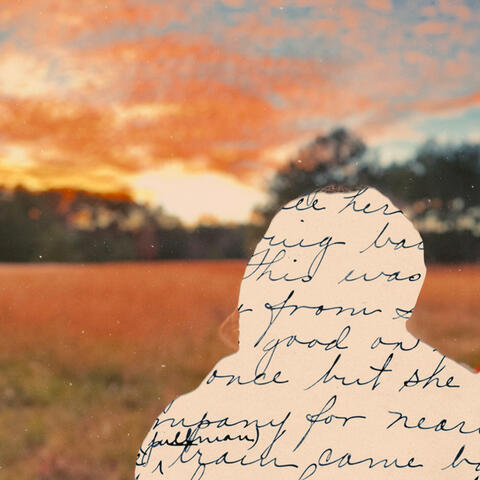 see her
ring bac
This was
from
good on
once but she
mpany for near
(pullman)
train came ba